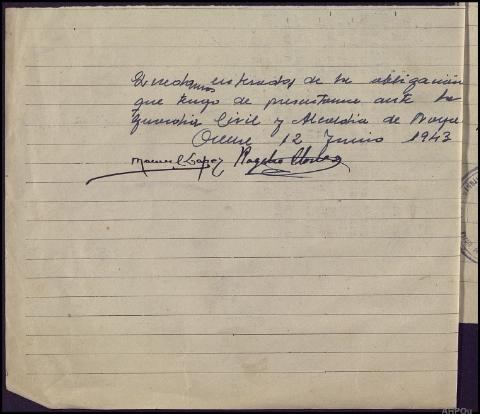 Quedamos enterados de la obligación
que tengo de presentarme ante la
guardia Civil y Alcaldía de Noya
Orense 12 Junio 1943
Manuel López Rogelio
AHPOu